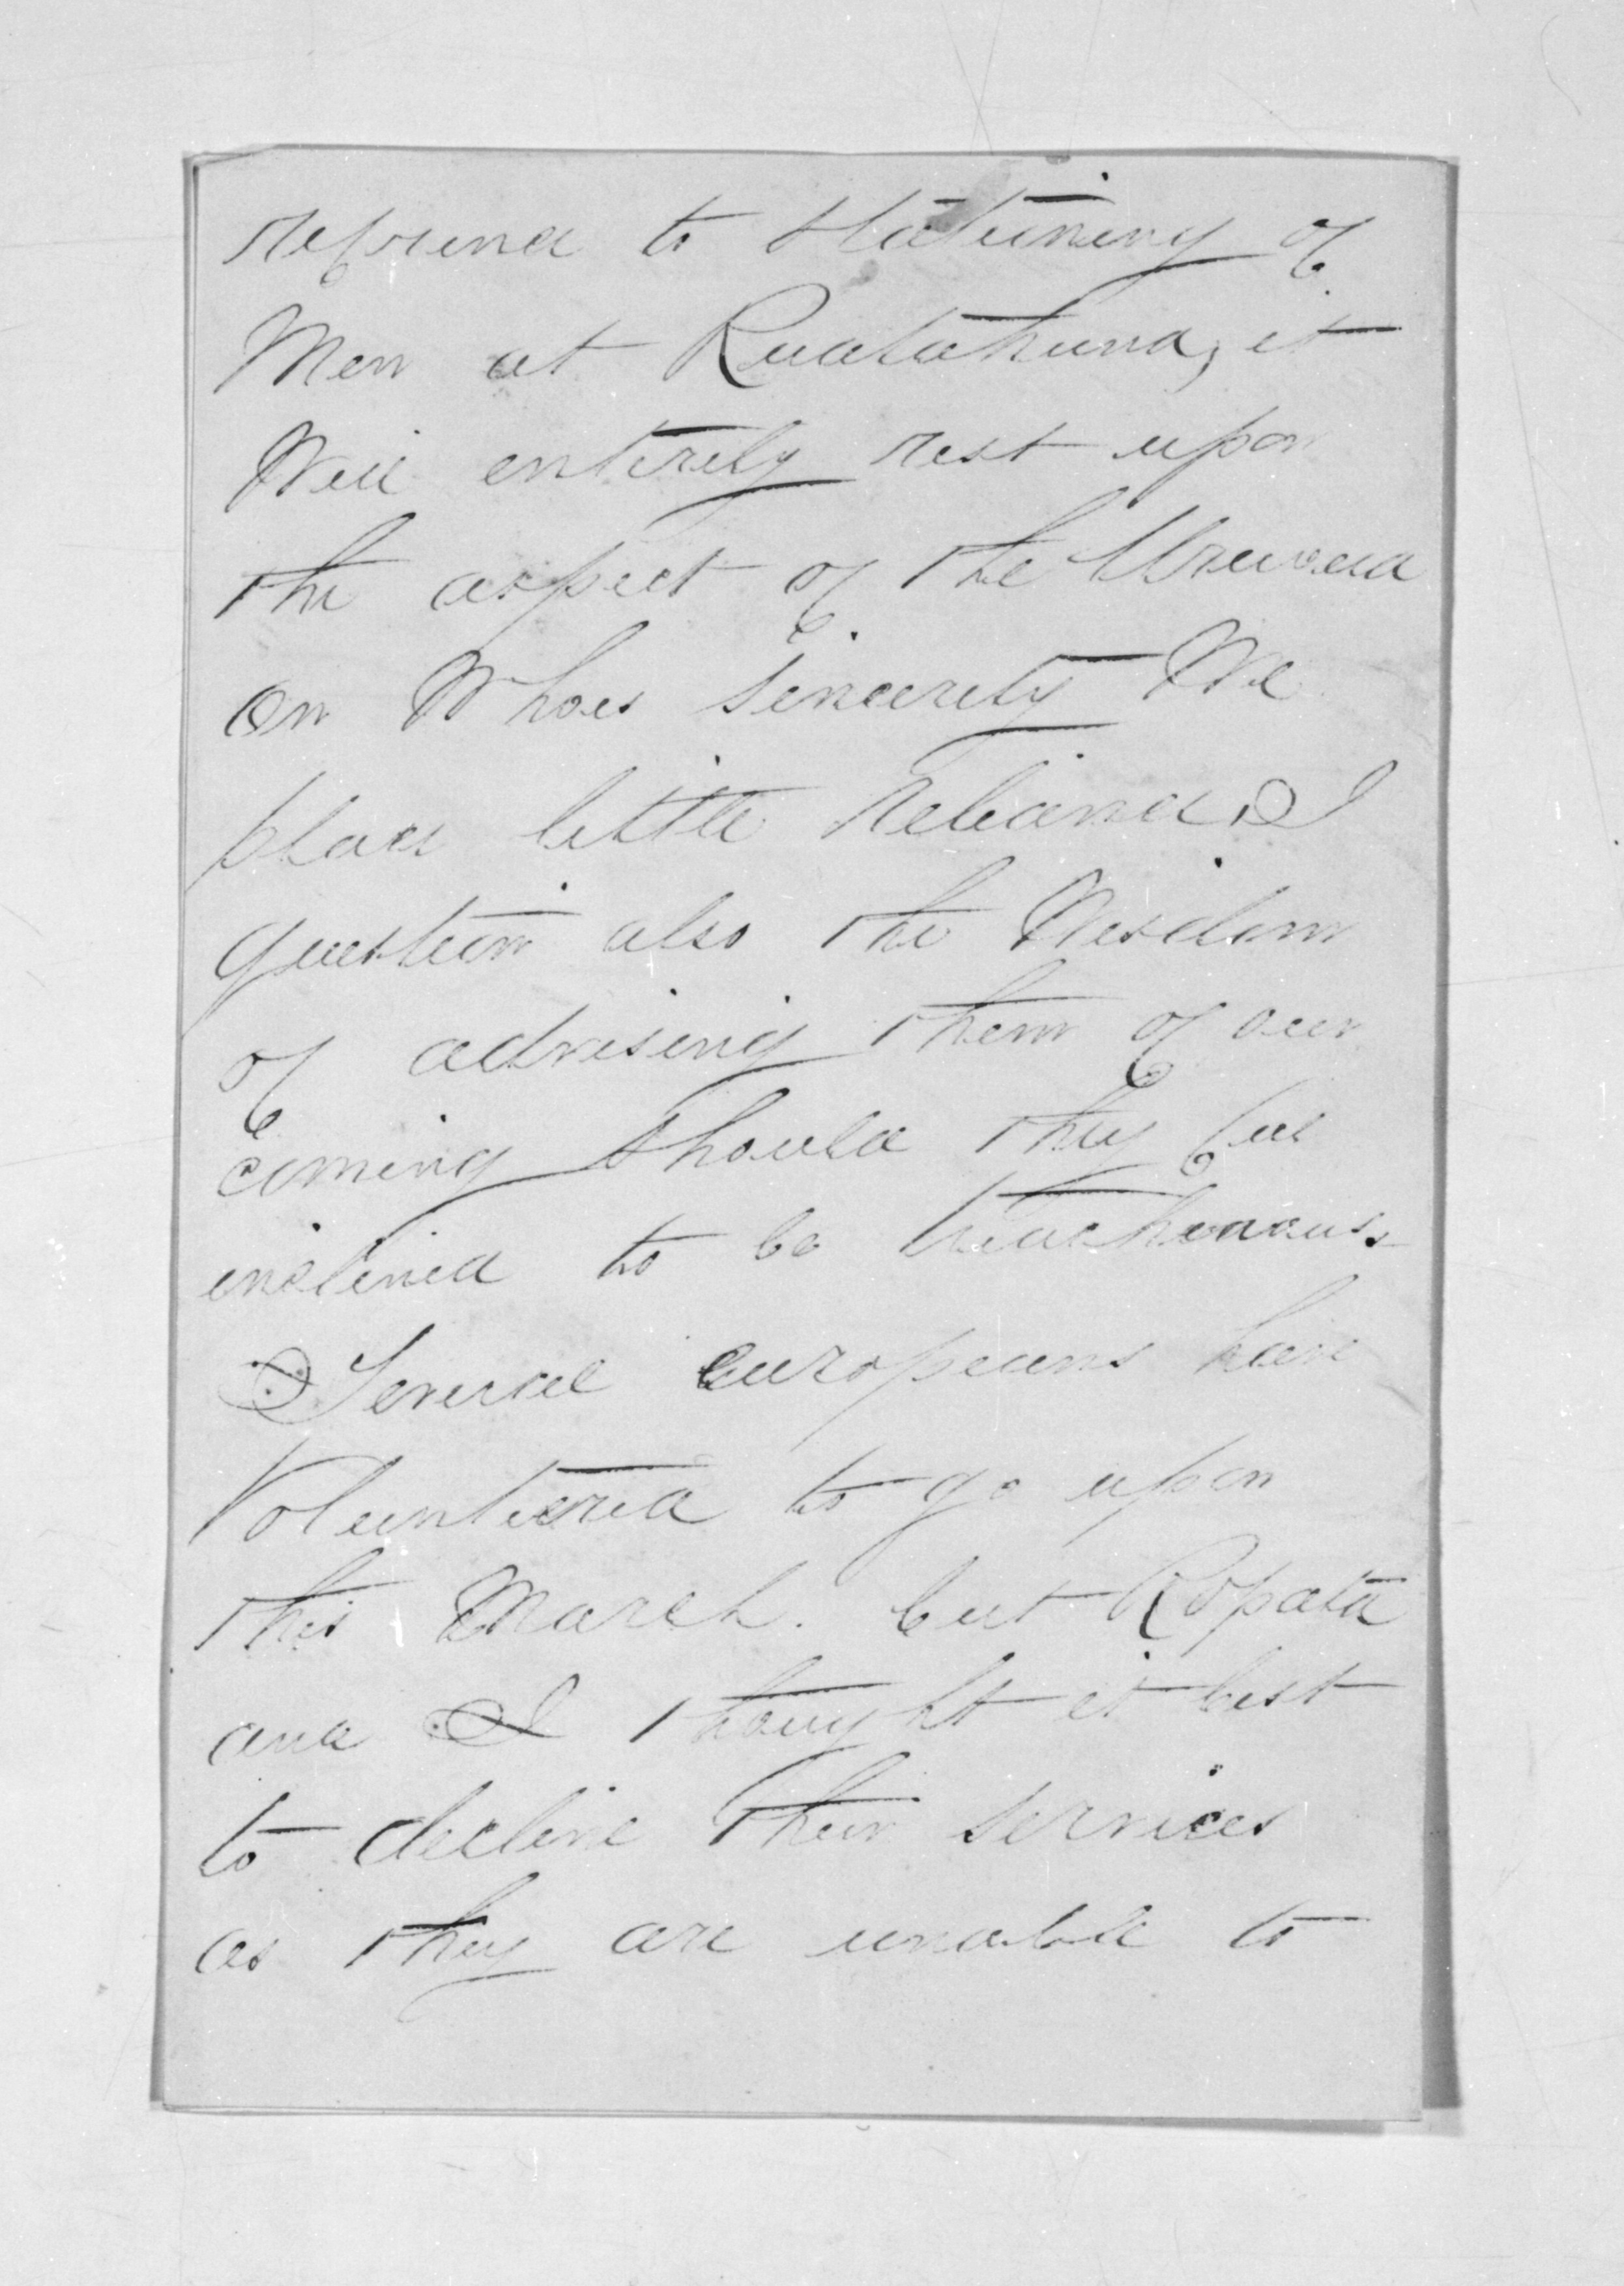 refrence to stationing of
Men at Ruatahuna, it
Will entirely rest upon
the aspect of the Urewera
on Whoes sincerity We
place little reliance I
question also the Wisdom
of advising them of our
coming should they feel
inclined to be treacherous.
Several europeans have
Volunteered to go upon
this March. but Ropata
and I thought it best
to decline their services
as they are unable to